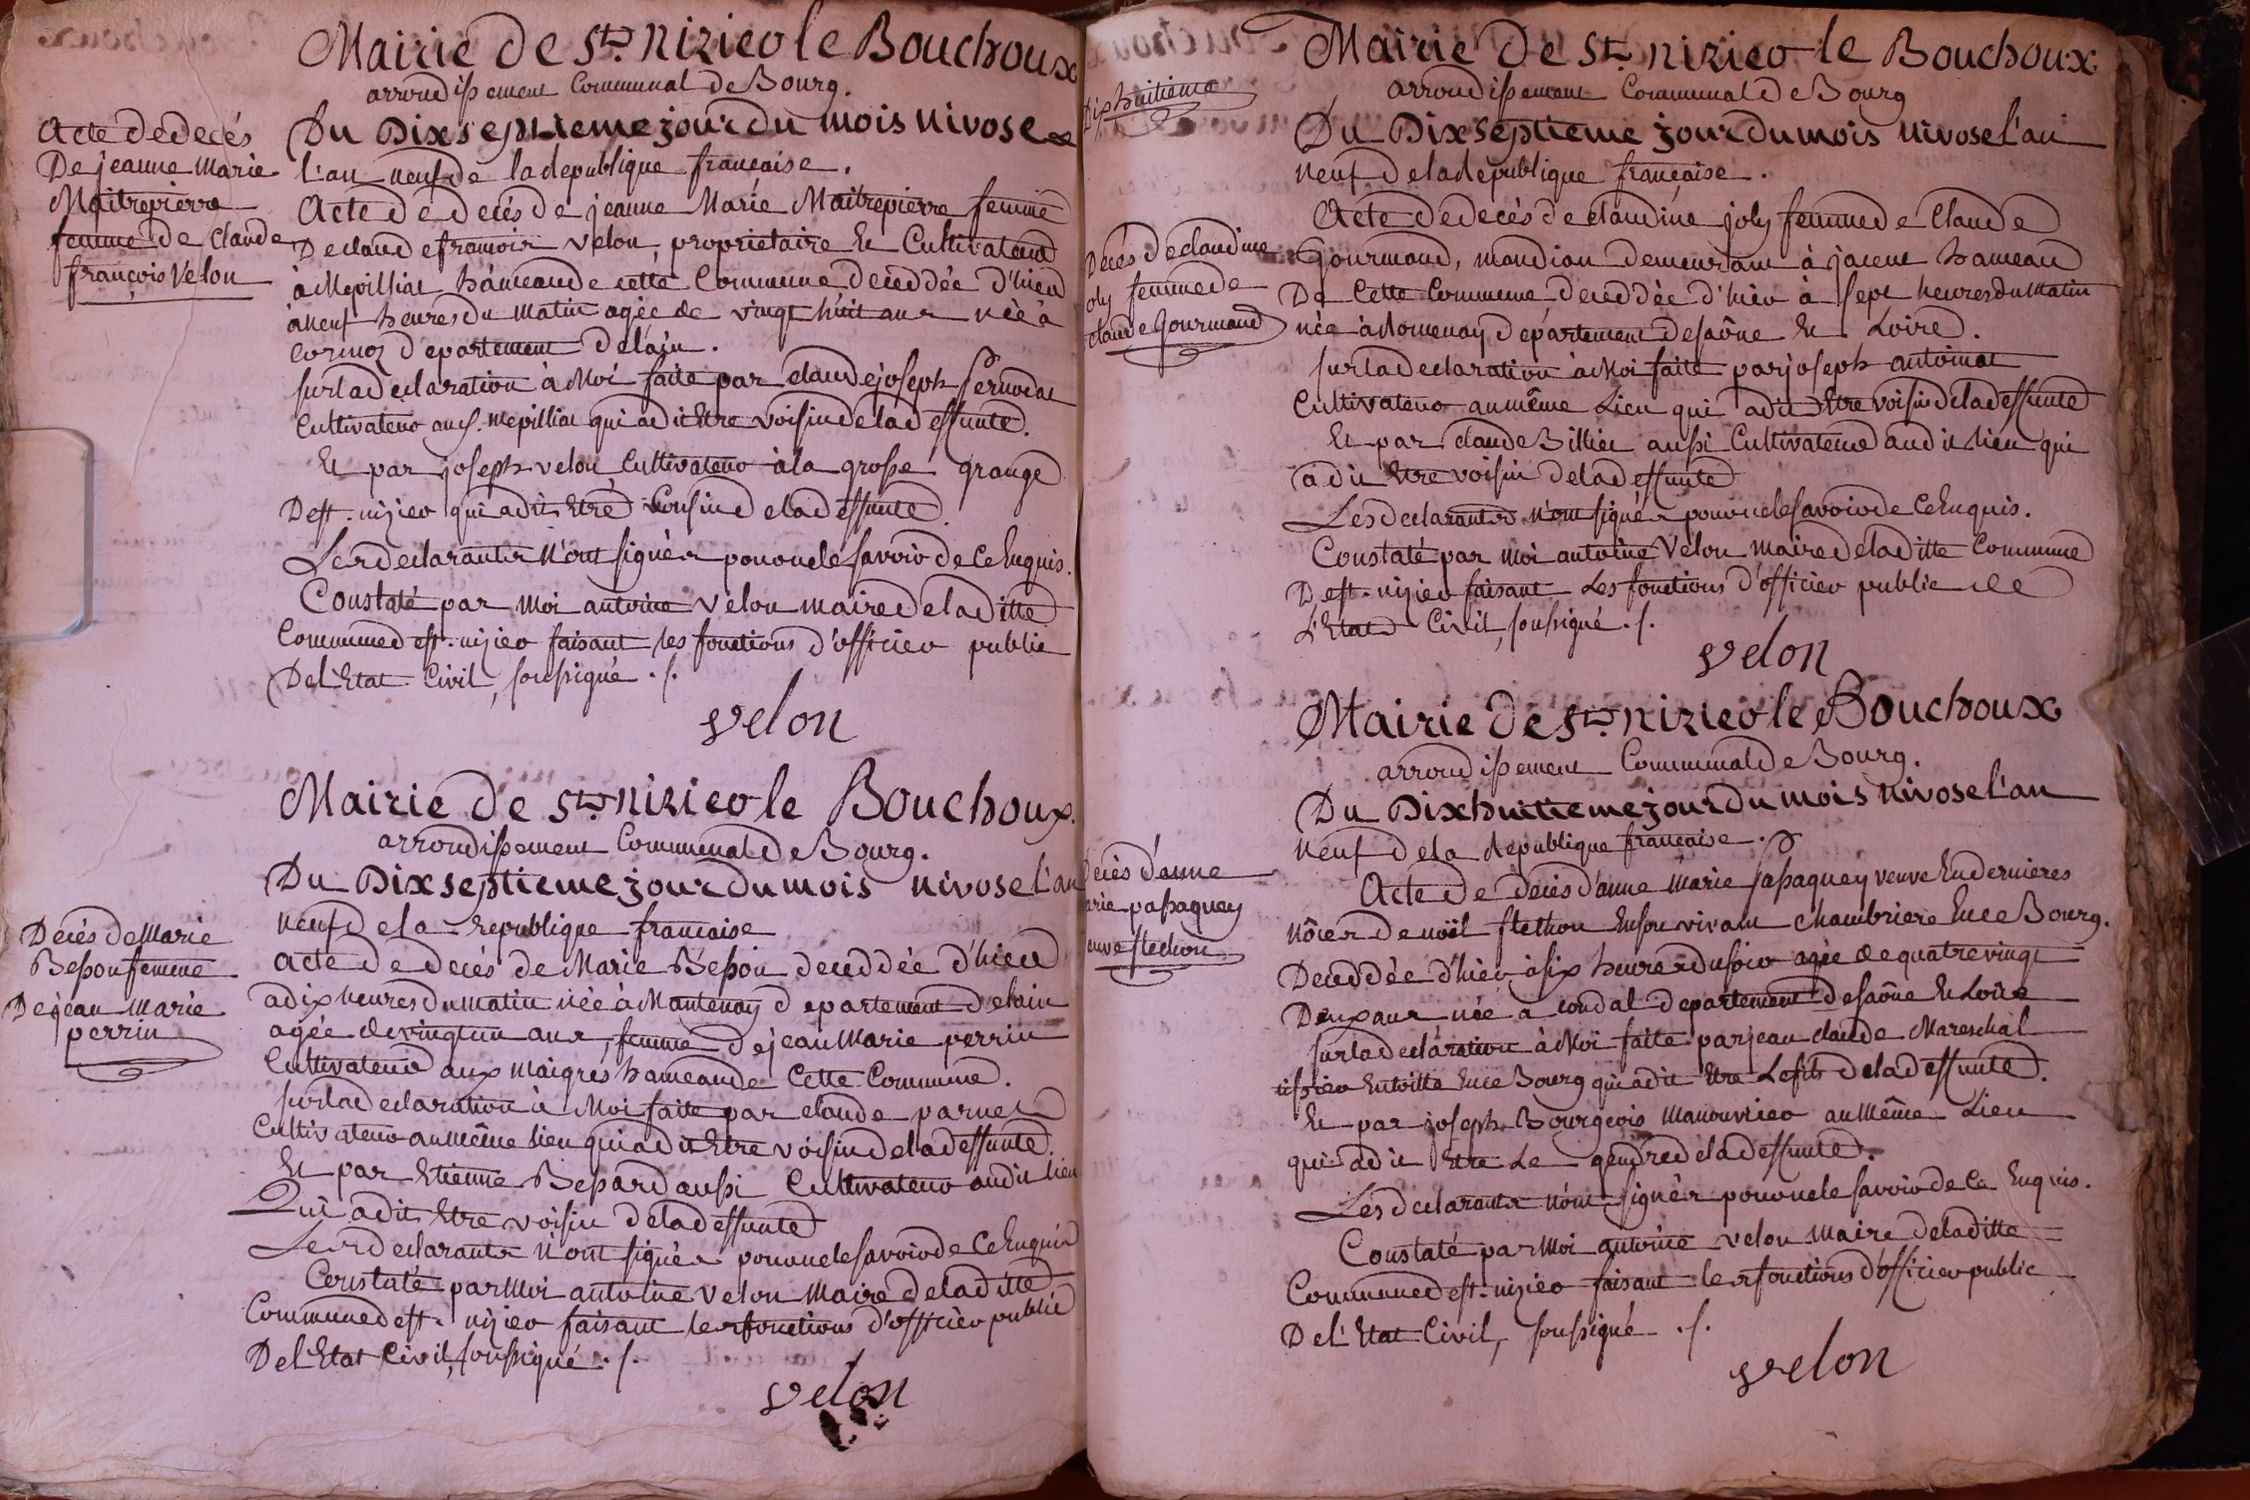 Mairie de St. nizier le Bouchoux
arrondissement Communal de Bourg.
Acte de decés
De jeanne Marie
Maitrepierre
femme de Claude
françois Velon
Du Dix septieme jour du mois nivose
l'an neuf de la Republique française.
Acte de decés de jeanne Marie Maitrepierre femme
De claude francois velon, proprietaire et Cultivateur
à Mepilliat hameau de cette Commune deceddée d'hier
à neuf heures du matin agée de vingt huit ans née à
Cormoz departement de l'ain.
sur la declaration à Moi faite par claude joseph
Cultivateur aud. mepilliat qui a dit Etre voisin de la deffunte.
Et par joseph velon, Cultivateur à la grosse grange
De st. nizier qui a dit Etre Cousin de la deffunte.
Les declarants n'ont signés pour ne le savoir de ce Enquis.
Constaté par Moi antoine velon maire de la ditte
Commune de st. nizier faisant les fonctions d'officier public
De l'Etat Civil, soussigné ./.
velon
Mairie de St. nizier le Bouchoux.
arrondissement Communal de Bourg.
Decés de Marie
Besson femme
De jean Marie
perrin
Du Dix septieme jour du mois nivose l'an
neuf de la republique francaise
acte de decés de Marie Besson deceddée d'hier
a dix heures du matin née à Mantenay departement de l'ain
agée de vingt un ans, femme de jean Marie perrin
Cultivateur aux maigres hameau de Cette Commune.
sur la declaration à Moi faite par claude parnet
Cultivateur au même lieu qui a dit Etre voisin de la deffunte.
Et par Etienne Bessard aussi Cultivateur au dit lieu
Qui a dit Etre voisin de la deffunte
Les declarants n'ont signés pour ne le savoir de ce Enquis
Constaté par Moi antoine velon Maire de la ditte
Commune de st. nizier faisant les fonctions d'officier public
De l'Etat Civil, soussigné ./.
velon
Mairie de St. nizier le Bouchoux
arrondissement Communal de Bourg
Dix huitieme
Du Dix septieme jour du mois nivose l'an
neuf de la Republique française.
Decés de claudine
joly femme de
claude Gourmand
Acte de decés de claudine joly femme de Claude
Gourmand, mandian demeurant à jacent hameau
De Cette Commune deceddée d'hier à sept heures du matin
née à Romenay departement de saône Et Loire.
sur la declaration à Moi faite par joseph antoinat
Cultivateur au même Lieu qui a dit Etre voisin de la deffunte
Et par claude Billiet aussi Cultivateur au dit lieu qui
a dit Etre voisin de la deffunte
Les declarants n'ont signés pour ne le savoir de ce Enquis.
Constaté par Moi antoine Velon maire de la ditte Commune
De st. nizier faisant Les fonctions d'officier public de
L'Etat Civil, soussigné ./.
velon
Mairie de St. nizier le Bouchoux
arrondissement Communal de Bourg.
Du Dix huitieme jour du mois nivose l'an
neuf de la Republique française.
Decés d'anne
marie passaquay
veuve flechon
Acte de decés d'anne marie passaquay veuve En dernieres
nôces de noël flechon En son vivant chambriere En ce Bourg.
Deceddée d'hier à six heures du soir agée de quatre vingt
Deux ans née a condal departement de saône Et Loire
sur la declaration à Moi faite par jean claude Mareschal
tissier En toille En ce Bourg qui a dit Etre Le fils de la deffunte.
Et par joseph Bourgeois manouvrier au même Lieu
qui a dit Etre Le gendre de la deffunte.
Les declarants n'ont signés pour ne le savoir de ce Enquis.
Constaté par Moi antoine velon Maire de la ditte
Commune de st. nizier faisant les fonctions d'officier public
De l'Etat Civil, soussigné ./.
velon